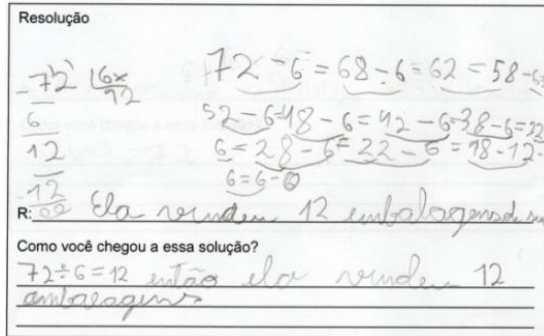 Resolução
72 - 6 = 68 - 6 = 62 = 58 - 6
- 72 | 6x
12
6
52 - 6 = 48 - 6 = 42 - 6 = 38 - 6 = 32
12
6 = 28 - 6 = 22 - 6 = 18 - 12 -
6 = 6 - 0
- 12
00
R: Ela vendeu 12 embalagens de
Como você chegou a essa solução?
72 ÷ 6 = 12 então ela vendeu 12
embalagens